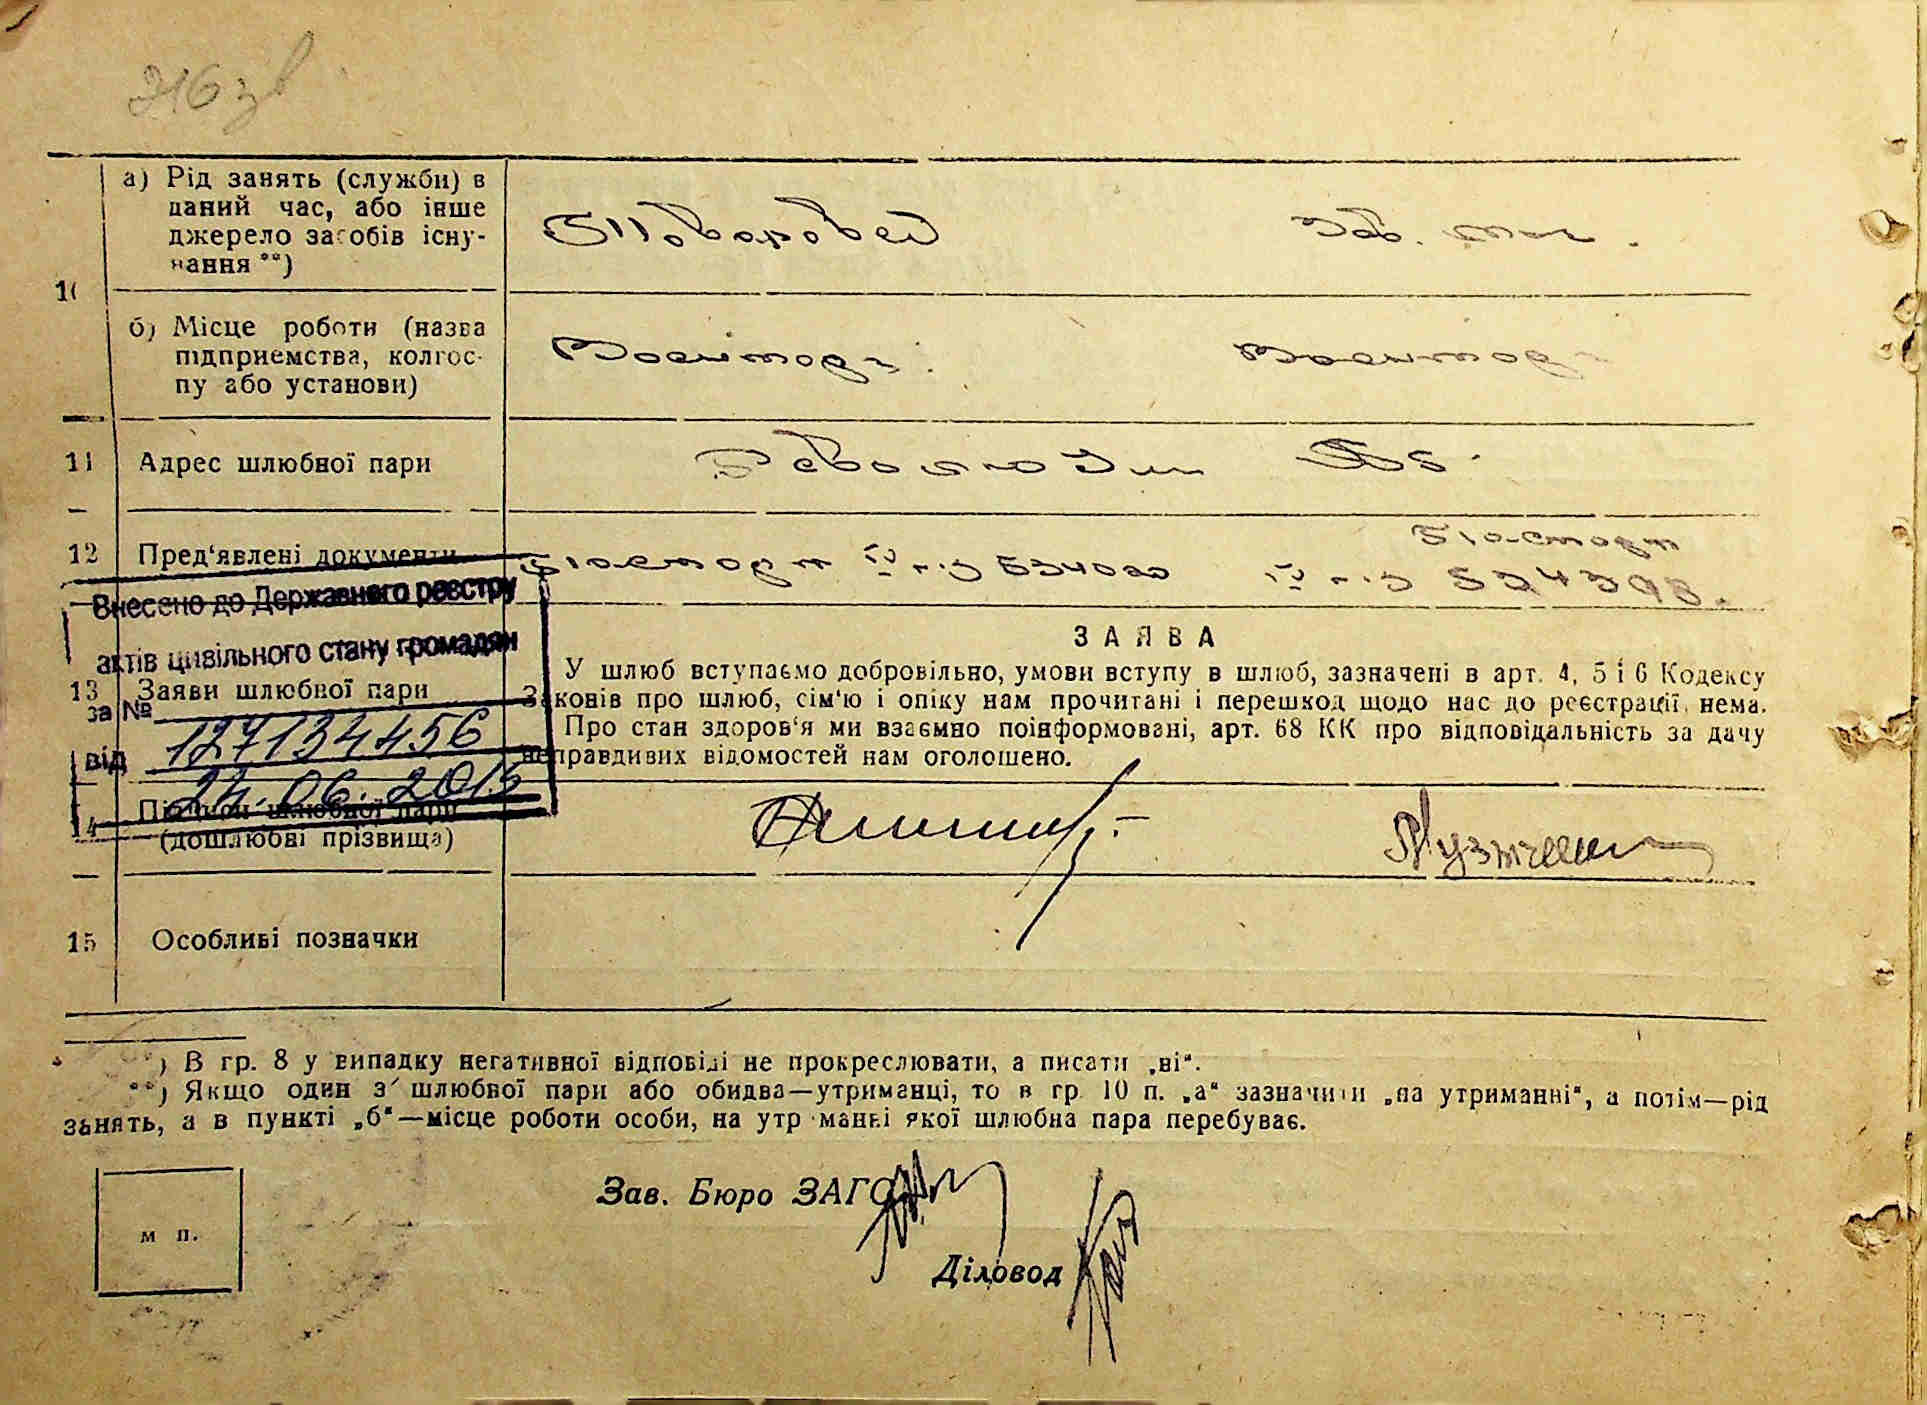 216 зв
а) Рід занять (служби) в
даний час, або інше
джерело засобів існу-
вання **)
Товаровед
Зав. маг.
10
б) Місце роботи (назва
підприемства, колгос-
пу або установи)
Воєнторг
Военторг
11 Адрес шлюбної пари
Революции
12 Пред'явлені документи
Паспорт IV
Паспорт
IV
Внесено до Державного реєстру
актів цивільного стану громадян
за №
127134456
від
24.06.2015
13 Заяви шлюбної пари
ЗАЯВА
У шлюб вступаємо добровільно, умови вступу в шлюб, зазначені в арт. 4, 5 і 6 Кодексу
Законів про шлюб, сім'ю і опіку нам прочитані і перешкод щодо нас до реєстрації нема.
Про стан здоров'я ми взаємно поінформовані, арт. 68 КК про відповідальність за дачу
неправдивих відомостей нам оголошено.
14 Підписи шлюбної пари
(дошлюбні прізвища)
15 Особливі позначки
*) В гр. 8 у випадку негативної відповіді не прокреслювати, а писати „ні“.
**) Якщо один з шлюбної пари або обидва—утриманці, то в гр. 10 п. „а“ зазначити „на утриманні“, а потім—рід
занять, а в пункті „б“—місце роботи особи, на утриманні якої шлюбна пара перебуває.
м п.
Зав. Бюро ЗАГС
Діловод